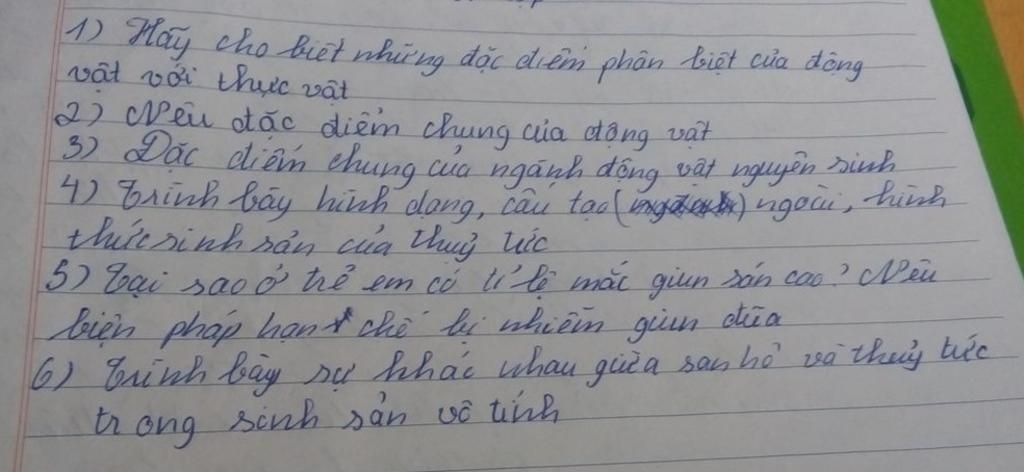 1) Hãy cho biết những đặc điểm phân biệt của động
vật với thực vật
2) Nêu đặc điểm chung của động vật
3) Đặc điểm chung của ngành động vật nguyên sinh
4) Trình bày hình dạng, cấu tạo () ngoài, hình
thức sinh sản của thuỷ tức
5) Tại sao ở trẻ em có tỉ lệ mắc giun sán cao? Nêu
biện pháp hạn chế bị nhiễm giun đũa
6) Trình bày sự khác nhau giữa san hô và thuỷ tức
trong sinh sản vô tính